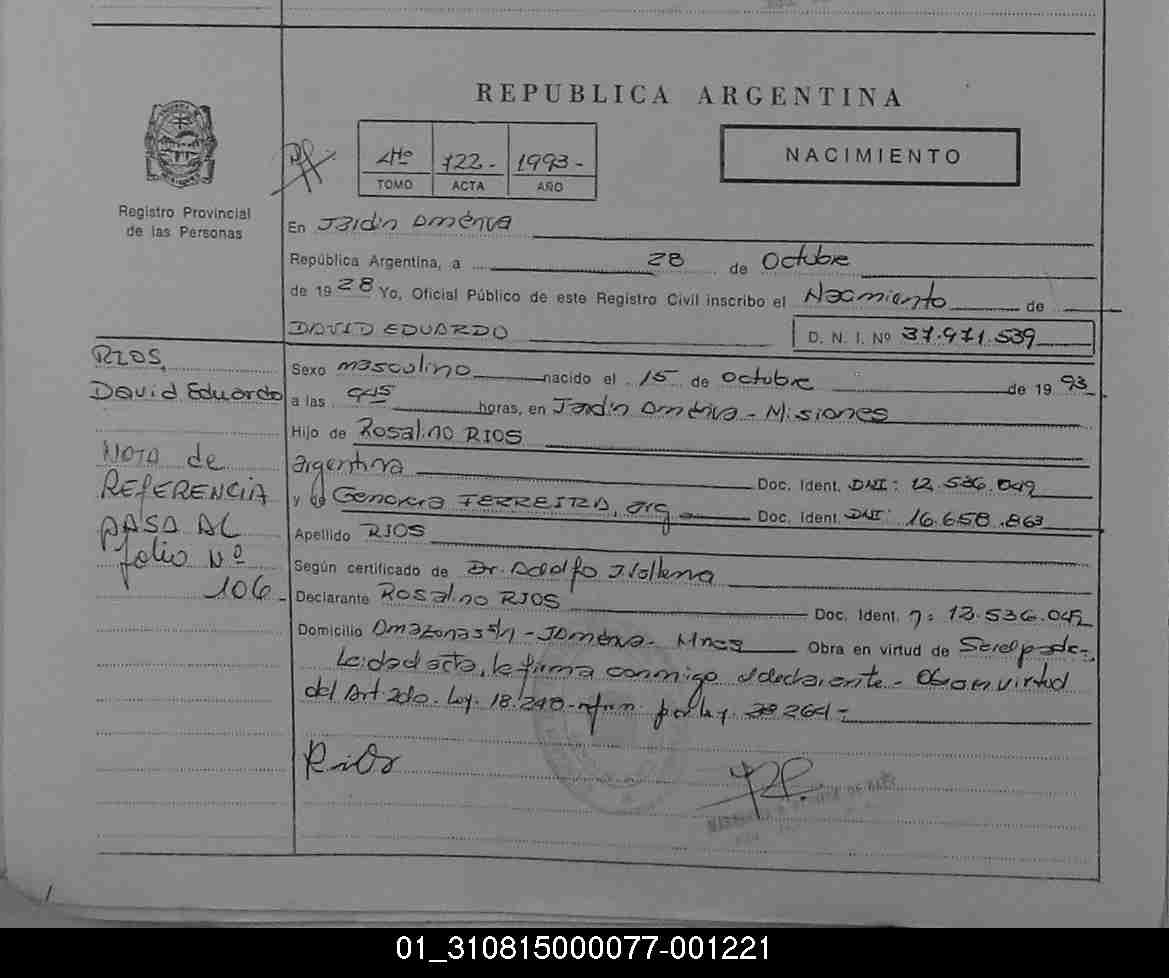 REPUBLICA ARGENTINA
4to 122- 1993-
TOMO ACTA AÑO
NACIMIENTO
Registro Provincial
de las Personas
En Jardin América
República Argentina, a 28 de Octubre
de 1928 Yo, Oficial Público de este Registro Civil inscribo el Nacimiento de
DAVID EDUARDO
D. N. I. Nº 37.971.539
RIOS,
David Eduardo
Sexo masculino nacido el 15 de octubre de 1993
a las 945 horas, en Jardin América - Misiones
Hijo de Rosalino RIOS
argentina Doc. Ident. DNI: 12.536.049
y de FERREIRA, arg Doc. Ident. DNI: 16.658.863
NOTA de
REFERENCIA
PASA AL
folio Nº
106-
Apellido RIOS
Según certificado de Dr. Adolfo
Declarante Rosalino RIOS Doc. Ident. 12.536.042
Domicilio Amazonas s/n - J América - Mnes Obra en virtud de
Leida el acta, la firma conmigo el declarante - Obra en virtud
del Art 2do. Ley. 18.248 - por ley.
Rios